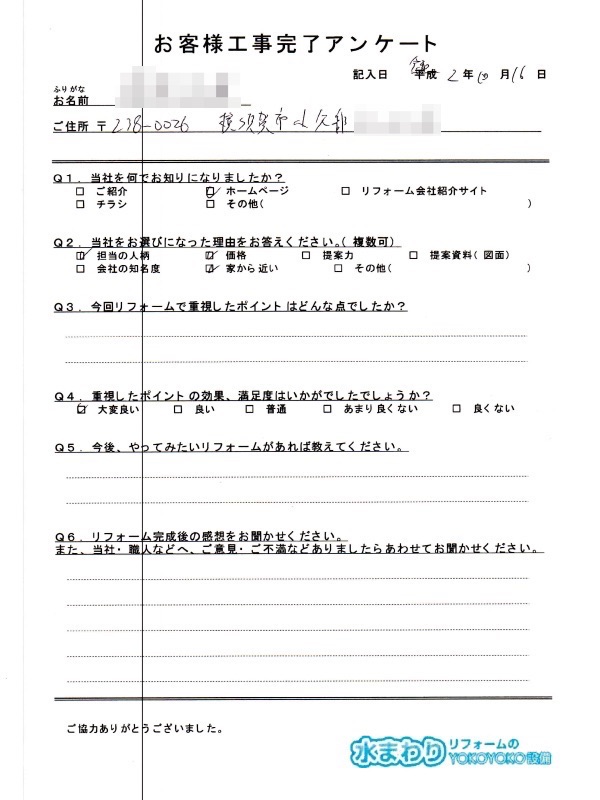 お客様工事完了アンケート
記入日 令和 平成 2 年 10 月 16 日
ふりがな
お名前
ご住所 〒 238-0026 横須賀市小矢部
Q1．当社を何でお知りになりましたか？
□ ご紹介 ☑ ホームページ □ リフォーム会社紹介サイト
□ チラシ □ その他( )
Q2．当社をお選びになった理由をお答えください。( 複数可)
☑ 担当の人柄 ☑ 価格 □ 提案力 □ 提案資料( 図面)
□ 会社の知名度 ☑ 家から近い □ その他( )
Q3．今回リフォームで重視したポイントはどんな点でしたか？
Q4．重視したポイントの効果、満足度はいかがでしたでしょうか？
☑ 大変良い □ 良い □ 普通 □ あまり良くない □ 良くない
Q5．今後、やってみたいリフォームがあれば教えてください。
Q6．リフォーム完成後の感想をお聞かせください。
また、当社・職人などへ、ご意見・ご不満などありましたらあわせてお聞かせください。
ご協力ありがとうございました。
水まわり リフォームの
YOKOYOKO設備